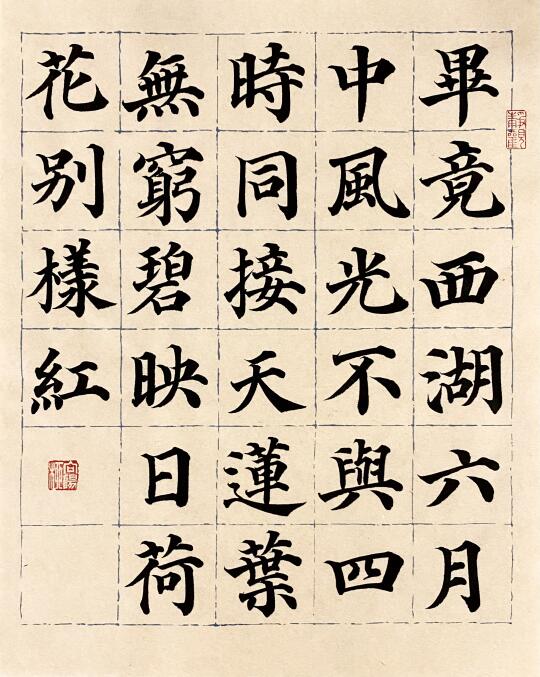 畢竟西湖六月
中風光不與四
時同接天蓮葉
無窮碧映日荷
花别樣紅